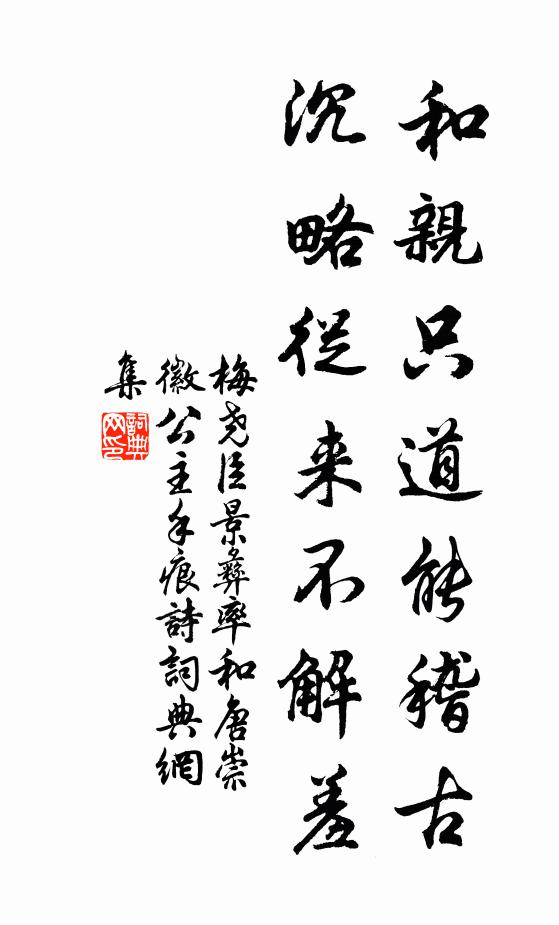 和親只道能稽古
沉略從来不解羞
梅堯臣景彝率和唐崇
徽公主手痕詩詞典網
集
詞典
网印